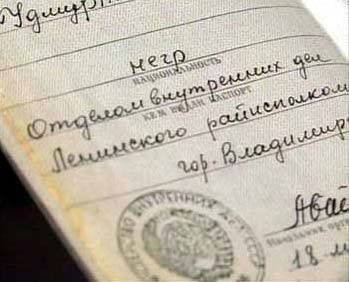 Удмурт
негр
НАЦИОНАЛЬНОСТЬ
Отделом внутренних дел
КЕМ ВЫДАН ПАСПОРТ
Ленинского райисполком
гор. Владимир
Начальник орг
18 м